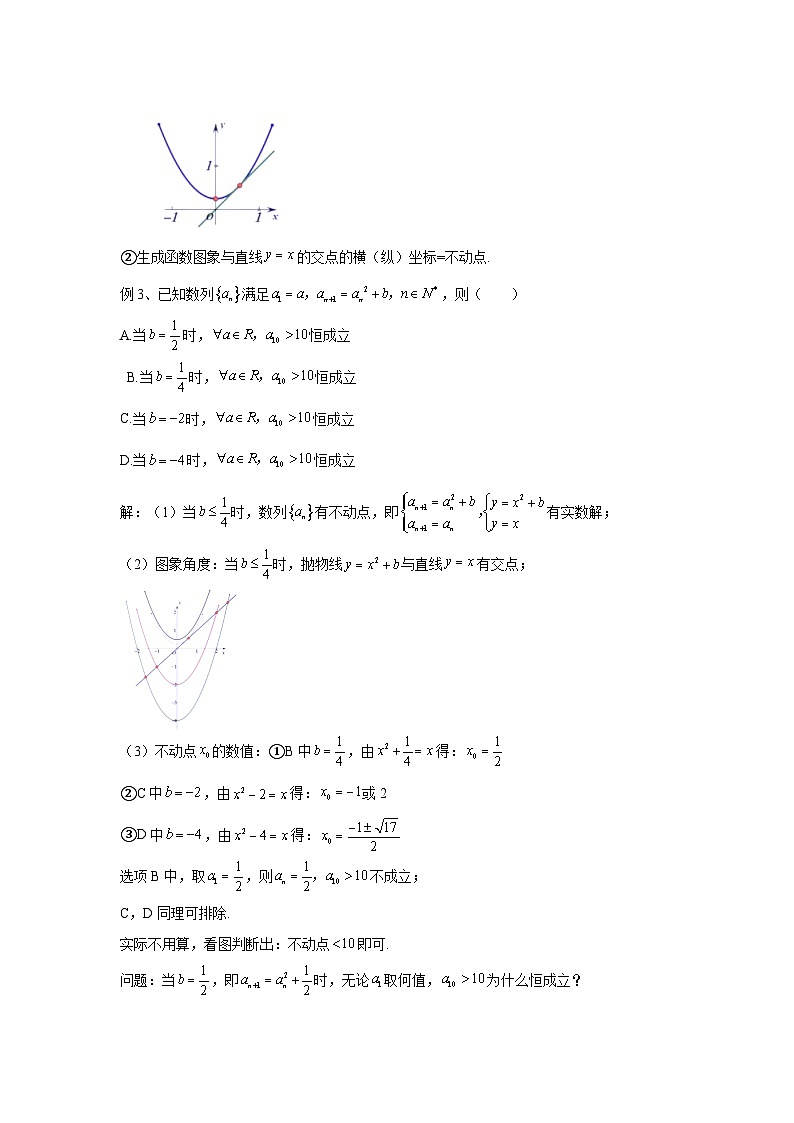 y
1
-1 O 1 x
②生成函数图象与直线 y = x 的交点的横（纵）坐标=不动点.
例 3、已知数列{aₙ}满足 a₁ = a，aₙ₊₁ = aₙ² + b，n ∈ N*，则（　　）
A.当 b = 1/2 时，∀a ∈ R，a₁₀ >10 恒成立
B.当 b = 1/4 时，∀a ∈ R，a₁₀ >10 恒成立
C.当 b = −2 时，∀a ∈ R，a₁₀ >10 恒成立
D.当 b = −4 时，∀a ∈ R，a₁₀ >10 恒成立
解：（1）当 b ≤ 1/4 时，数列{aₙ}有不动点，即 {aₙ₊₁ = aₙ² + b, aₙ₊₁ = aₙ , {y = x² + b, y = x 有实数解；
（2）图象角度：当 b ≤ 1/4 时，抛物线 y = x² + b 与直线 y = x 有交点；
（3）不动点 x₀ 的数值：①B 中 b = 1/4，由 x² + 1/4 = x 得：x₀ = 1/2
②C 中 b = −2，由 x² − 2 = x 得：x₀ = −1 或 2
③D 中 b = −4，由 x² − 4 = x 得：x₀ = (−1 ± √17)/2
选项 B 中，取 a₁ = 1/2，则 aₙ = 1/2，a₁₀ >10 不成立；
C，D 同理可排除.
实际不用算，看图判断出：不动点 <10 即可.
问题：当 b = 1/2，即 aₙ₊₁ = aₙ² + 1/2 时，无论 a₁ 取何值，a₁₀ >10 为什么恒成立？